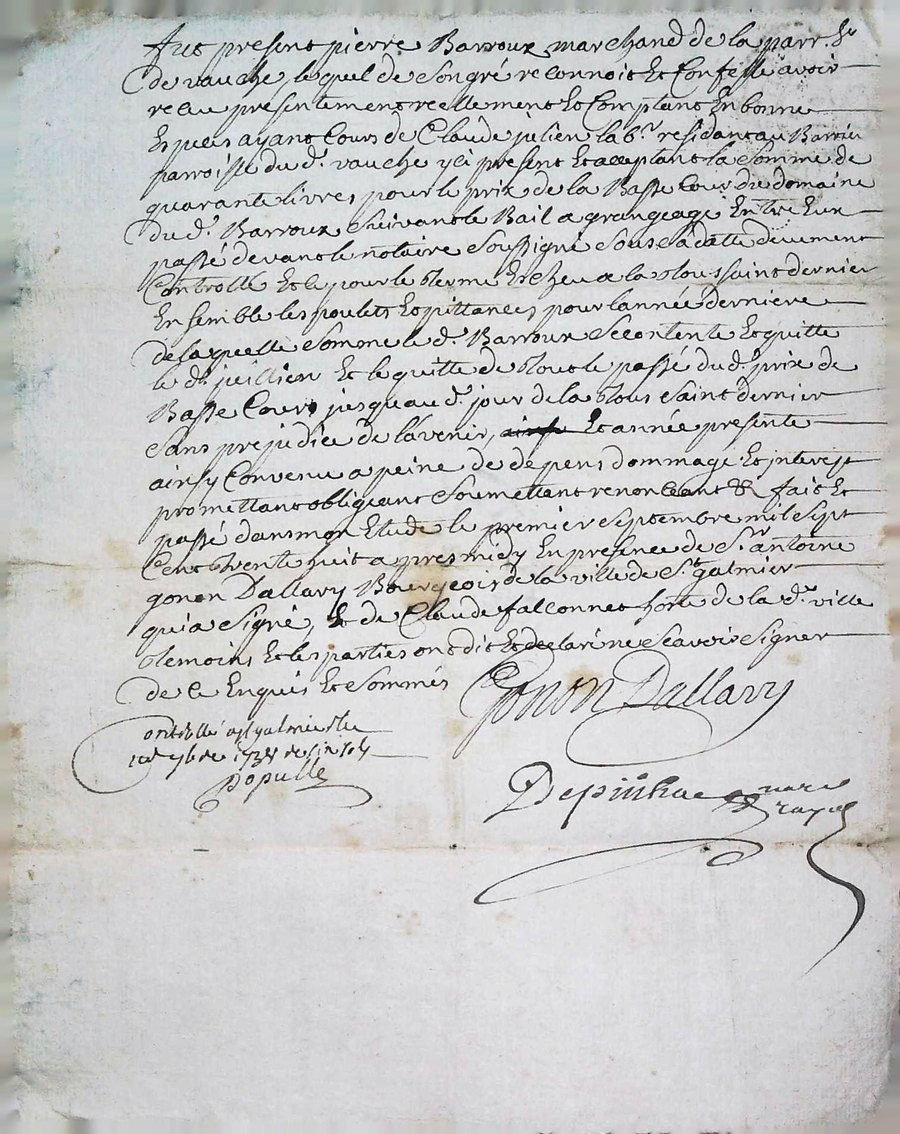 fut present pierre Barroux marchand de la parr.se
de vauche, lequel de son gré reconnoit Et Confesse avoir
recu presentement reellement Et Comptant En bonne
Especes ayant Cours de Claude julien lab.r residant au Barrou
parroisse du d. vauche y ci present Et acceptant la Somme de
quarante livres pour le prix de la Basse Cour du domaine
du d. Barroux Suivant le Bail a grangeage Entre Eux
passé devant le notaire Soussigné Sous Sa datte deuement
Controllé Et ce pour le terme Escheu a la toussaint dernier
Ensemble les poulets Et pittances pour l'année derniere
de laquelle Somme le d. Barroux Se Contente Et quitte
le d. juillien Et le quitte de tout le passé du d. prix de
Basse Cour jusqu au d. jour de la tous Saint dernier
Sans prejudice de l'avenir, Et année presente
ainsy Convenu a peine de depens dommage Et interest
promettant obligeant Soumettant renonceant &c fait Et
passé dans mon Etude le premier Septembre mil Sept
Cent trente huit apres midy En presence de S.r antoine
gonon Dallary Bourgeois de la ville de S.t galmier
qui a Signé, Et de Claude falconnet hote de la d. ville
temoins Et les parties ont dit Et declaré ne Scavoir Signer
de ce Enquis Et Sommés
Gonon Dallary
Controllé a St galmier le
7bre 1738
Populle
Depinhac no.re
royal